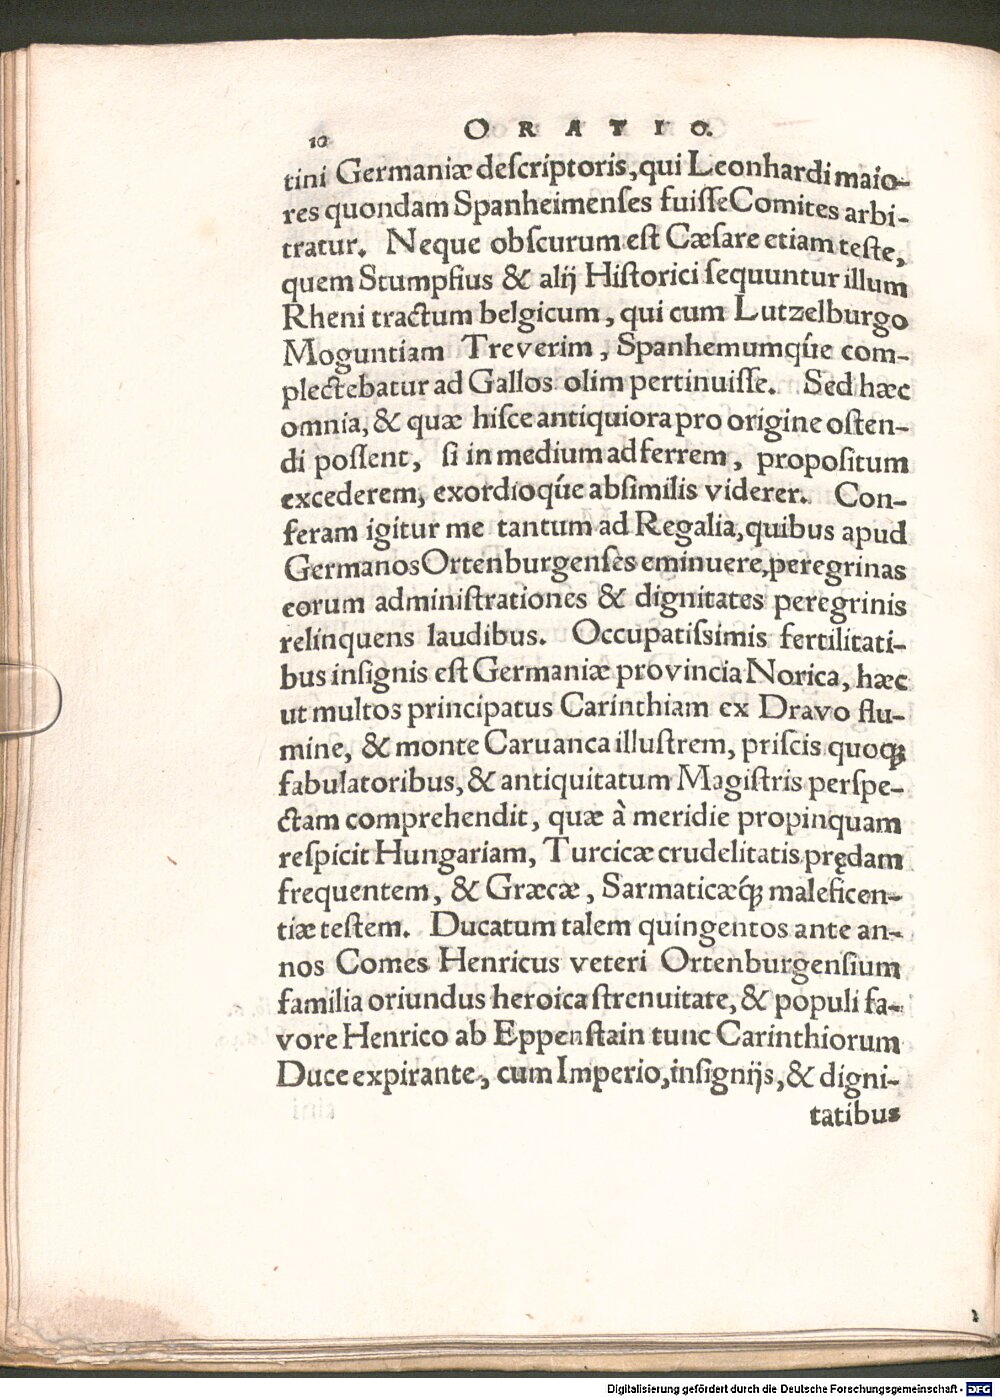 10 ORATIO.
tini Germaniæ deſcriptoris, qui Leonhardi maio-
res quondam Spanheimenſes fuiſſe Comites arbi-
tratur. Neque obſcurum eſt Cæſare etiam teſte,
quem Stumpfius & alij Hiſtorici ſequuntur illum
Rheni tractum belgicum, qui cum Lutzelburgo
Moguntiam Treverim, Spanhemumqúe com-
plectebatur ad Gallos olim pertinuiſſe. Sed hæc
omnia, & quæ hiſce antiquiora pro origine oſten-
di poſſent, ſi in medium adferrem, propoſitum
excederem, exordioqúe abſimilis viderer. Con-
feram igitur me tantum ad Regalia, quibus apud
Germanos Ortenburgenſes eminuere, peregrinas
eorum adminiſtrationes & dignitates peregrinis
relinquens laudibus. Occupatiſsimis fertilitati-
bus inſignis eſt Germaniæ provincia Norica, hæc
ut multos principatus Carinthiam ex Dravo flu-
mine, & monte Caruanca illuſtrem, priſcis quoqꝫ
fabulatoribus, & antiquitatum Magiſtris perſpe-
ctam comprehendit, quæ à meridie propinquam
reſpicit Hungariam, Turcicæ crudelitatis prędam
frequentem, & Græcæ, Sarmaticæq́ꝫ maleficen-
tiæ teſtem. Ducatum talem quingentos ante an-
nos Comes Henricus veteri Ortenburgenſium
familia oriundus heroica ſtrenuitate, & populi fa-
vore Henrico ab Eppenſtain tunc Carinthiorum
Duce expirante, cum Imperio, inſignijs, & digni-
tatibus
Digitalisierung gefördert durch die Deutsche Forschungsgemeinschaft - DFG